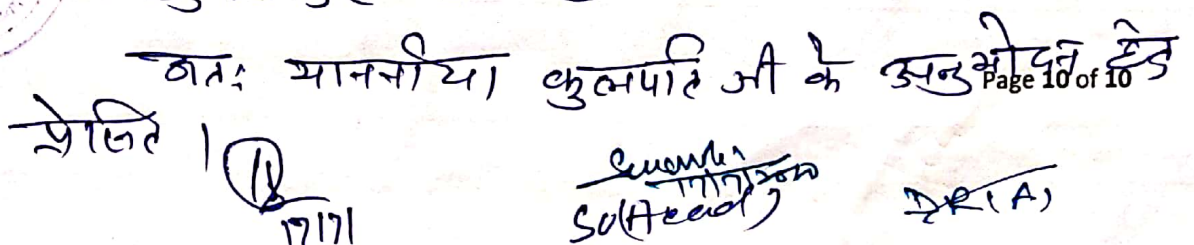 अतः माननीया कुलपति जी के अनुमोदन हेतु
Page 10 of 10
प्रेषित ।
17/7/
SO(Acad) DR(A)